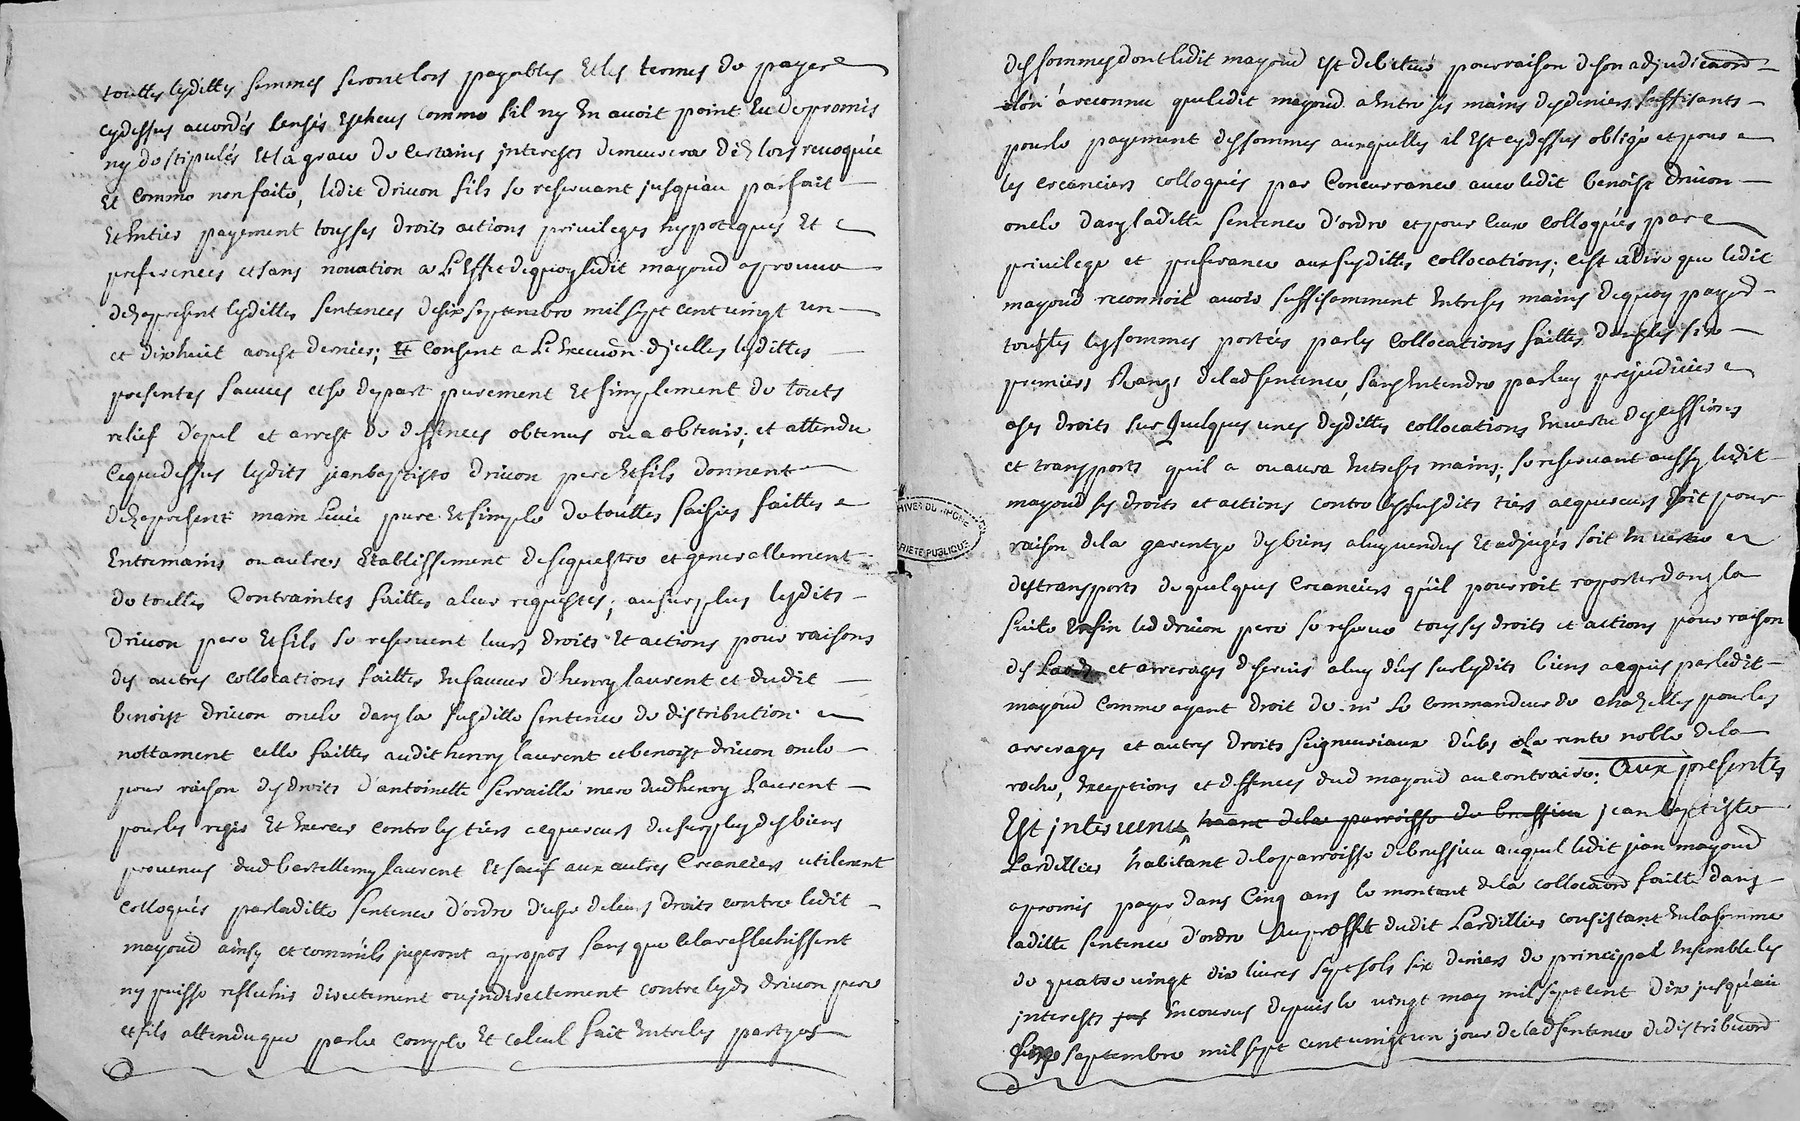 touttes lesdittes sommes seront lors payables et les termes de payer
cydessus accordés censés escheus comme s'il ny en avoit point eu de promis
ny de stipulés et la grace de certains interests demeurera dez lors revoquée
et comme non faite, ledit drivon fils se reservant jusqu'au parfait
et entier payement tous ses droits actions privileges hypoteques et
preferences et sans novation a L'Effet dequoy ledit mayoud approuve
dezapresent lesdittes sentences desix septembre mil sept cent vingt un
et dixhuit aoust dernier; et consent a L'Execuõn d'jcelles lesdittes
presentes sauves et se depart purement et simplement de touts
relief d'apel et arrest de deffences obtenus ou a obtenir; et attendu
cequedessus lesdits jeanbaptiste drivon pere et fils donnent
dezapresent main Levée pure et simple de touttes saisies faittes
Entremains ou autres Etablissement de sequestre et generallement
de touttes Contraintes faittes a leur requestes; au surplus lesdits
Drivon pere et fils se reservent leurs droits et actions pour raisons
des autres collocations faittes en faveur d'henry laurent et dudit
benoist drivon oncle dans la susditte sentence de distribution
nottament celle faittes audit henry laurent et benoist drivon oncle
pour raison des droits d'antoinette Servaille mere dud henry Laurent
pour les regir et exercer contre les tiers acquereurs du surplus des biens
provenus dud bartellemy laurent et sauf aux autres Creanciers utilement
colloqués par laditte sentence d'ordre d'user de leurs droits contre ledit
mayoud ainsy et comm'ils jugeront apropos sans que cela reflechissent
ny puisse reflechir directement ou jndirectement contre lesd drivon pere
et fils attendu que par le compte et calcul fait entre les partyes
des sommes dont ledit mayoud est debiteur pour raison de son adjudicaõn
a reconnu que ledit mayoud a entre ses mains des deniers suffisants
pour le payement des sommes auxquelles il est cydessus obligé et pour
les creanciers colloqués par Concurrance avec ledit benoist drivon
oncle dans laditte sentence d'ordre et pour ceux colloqués par
privilege et preferance aux susdittes collocations; c'est adire que ledit
mayoud reconnoit avoir suffisamment entre ses mains dequoy payer
touttes les sommes portées par les Collocations faittes dans les six
premiers Rangs de lad sentence, sans entendre par luy prejudicier
a ses droits sur quelques unes desdittes collocations en vertu des cessions
et transports qu'il a ou aura entre ses mains; se reservant aussy ledit
mayoud ses droits et actions contre les susdits tiers acquereurs soit pour
raison de la garentye des biens a luy vendus et adjugés soit en vertu
des transports de quelques Creanciers qu'il pourroit raporter dans la
suite enfin led drivon pere se reserve tous ses droits et actions pour raison
des Laods et arrerages de servis a luy dûs sur lesdits biens acquis par ledit
mayoud comme ayant droit de mr Le commandeur de chazelles pour les
arrerages et autres droits seigneuriaux dûbs a la rente noble de la
roche, exceptions et deffences dud mayoud au contraire. Aux presentes
Est jntervenu habant de la parroisse de brussieu jean baptiste
Lardellier habitant de la parroisse de brussieu auquel ledit jean mayoud
a promis payer dans Cinq ans le montant de la collocaõn faitte dans
laditte sentence d'ordre au proffit dudit Lardillier consistant en la somme
de quatre vingt dix livres sept sols six deniers de principal ensemble les
jnterests encourus depuis le vingt may mil sept cent dix jusqu'au
six septembre mil sept cent vingt un jour de lad sentence de distribuõn
ARCHIVES DU RHONE
PROPRIETE PUBLIQUE